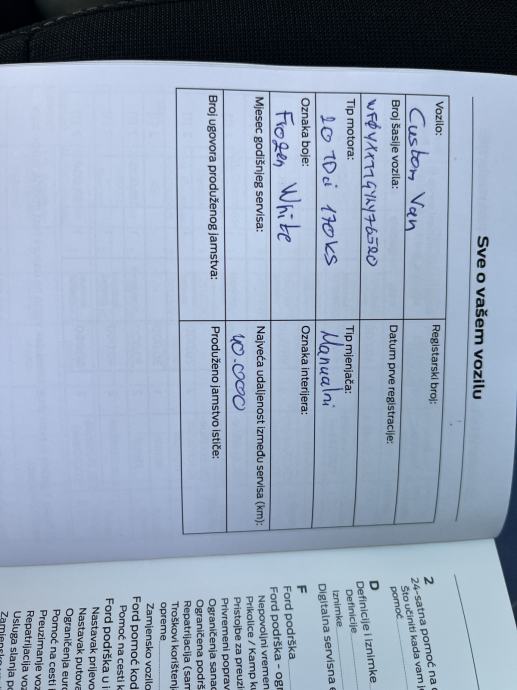 Sve o vašem vozilu
Vozilo:
Custom Van
Registarski broj:
Broj šasije vozila:
Datum prve registracije:
Tip motora:
20 TDdi 170 ks
Tip mjenjača:
Manualni
Oznaka boje:
Frozen White
Oznaka interijera:
Mjesec godišnjeg servisa:
Najveća udaljenost između servisa (km):
40.000
Broj ugovora produženog jamstva:
Produženo jamstvo ističe:
2
24-satna pomoć na
Što učiniti kada vam
pomoć
D
Definicije i iznimke
Definicije
Iznimke
Digitalna servisna
F
Ford podrška
Ford podrška - ogr
Nepovoljni vremen
Prikolice / Kamp
Pristojbe za preuzi
Privremeni poprav
Ograničenja sanac
Ograničena podrš
Repatrijacija (sam
Troškovi korištenj
opreme
Zamjensko vozilo
Ford pomoć kod
Pomoć na cesti
Ford podrška u i
Nastavak prijevo
Nastavak putova
Ograničenja euro
Pomoć na cesti
Preuzimanje voz
Repatrijacija voz
Usluga slanja